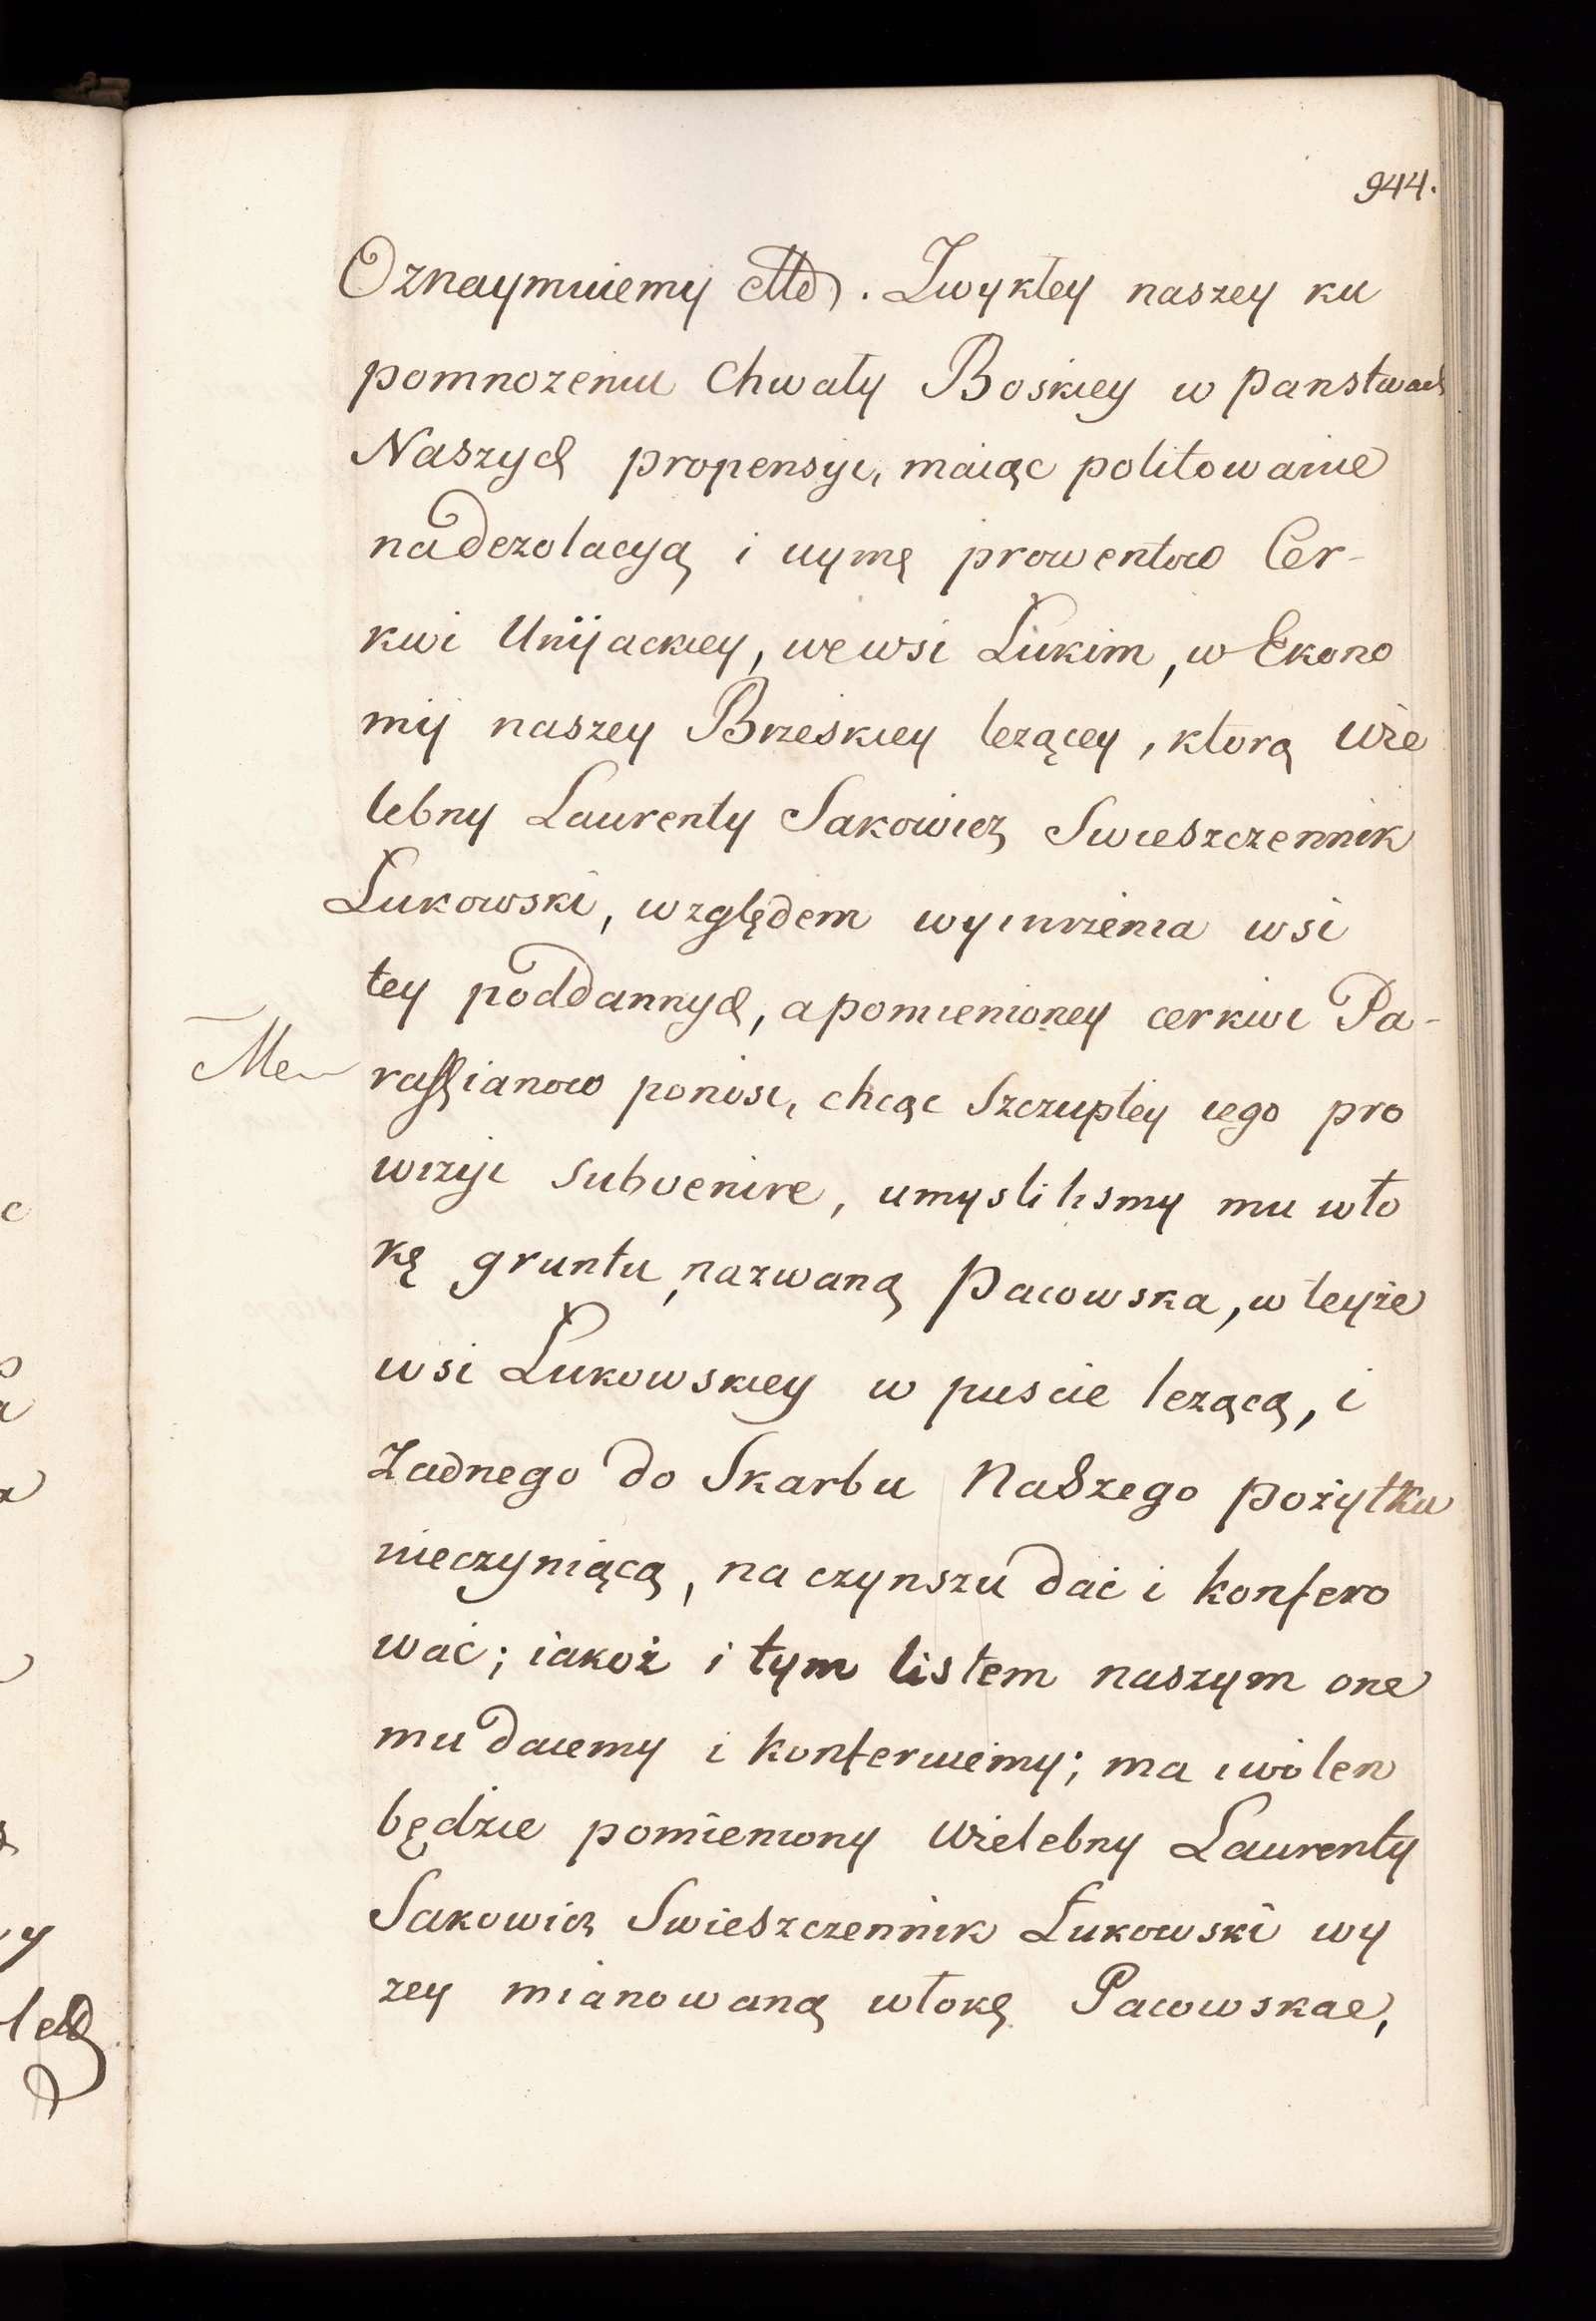 944.
Oznaymuiemy etto. Zwykłey naszey ku
pomnozeniu Chwały Boskiey w panstwach
Naszych propensyi, maiąc politowanie
na dezolacyą i uymę prowentow Cer-
kwi Unijackiey, we wsi Łukim, w Ekono
mij naszey Brzeskiey lezącey, ktorą Wie
lebny Laurenty Sakowicz Swieszczennik
Łukowski, względem wymrzenia wsi
tey poddannych, a pomienioney cerkwi Pa-
rafianow ponosi, chcąc Szczupłey iego pro
wizyi subvenire, umyslilismy mu wło
kę gruntu, nazwaną Pacowska, w teyże
wsi Łukowskiey w puscie lezącą, i
Żadnego do Skarbu Naszego pożytku
nieczyniącą, na czynszu dać i konfero
wać; iakoż i tym listem naszym one
mu daiemy i konferuiemy; ma i wolen
będzie pomieniony Wielebny Laurenty
Sakowicz Swieszczennik Łukowski wy
zey mianowaną włokę Pacowskae,